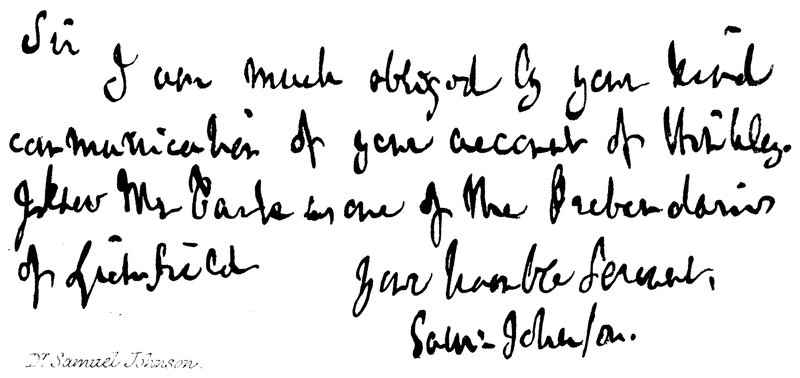 Sir
I am much obliged by your kind
communication of your account of Hinkley.
I know Mr Carte is one of the Prebendaries
of Lichfield
Your humble servant,
Sam: Johnson.
Dr. Samuel Johnson.